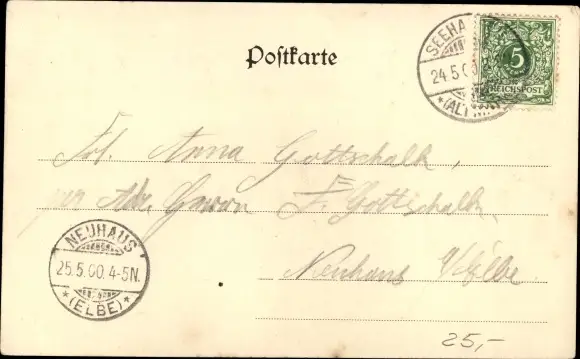 Postkarte
SEEHA
24.5.00
*(ALTM
5
REICHSPOST
Frl. Anna Gottschalk,
Adr. F. Gottschalk
Neuhaus a/Elbe
NEUHAUS
25.5.00.4-5N.
*(ELBE)*
25,-